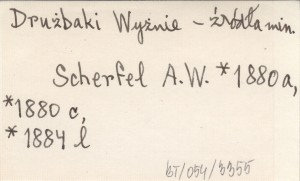 Drużbaki Wyżnie - źródła min.
Scherfel A.W. *1880 a,
*1880 c,
*1884 l
bT/054/3355